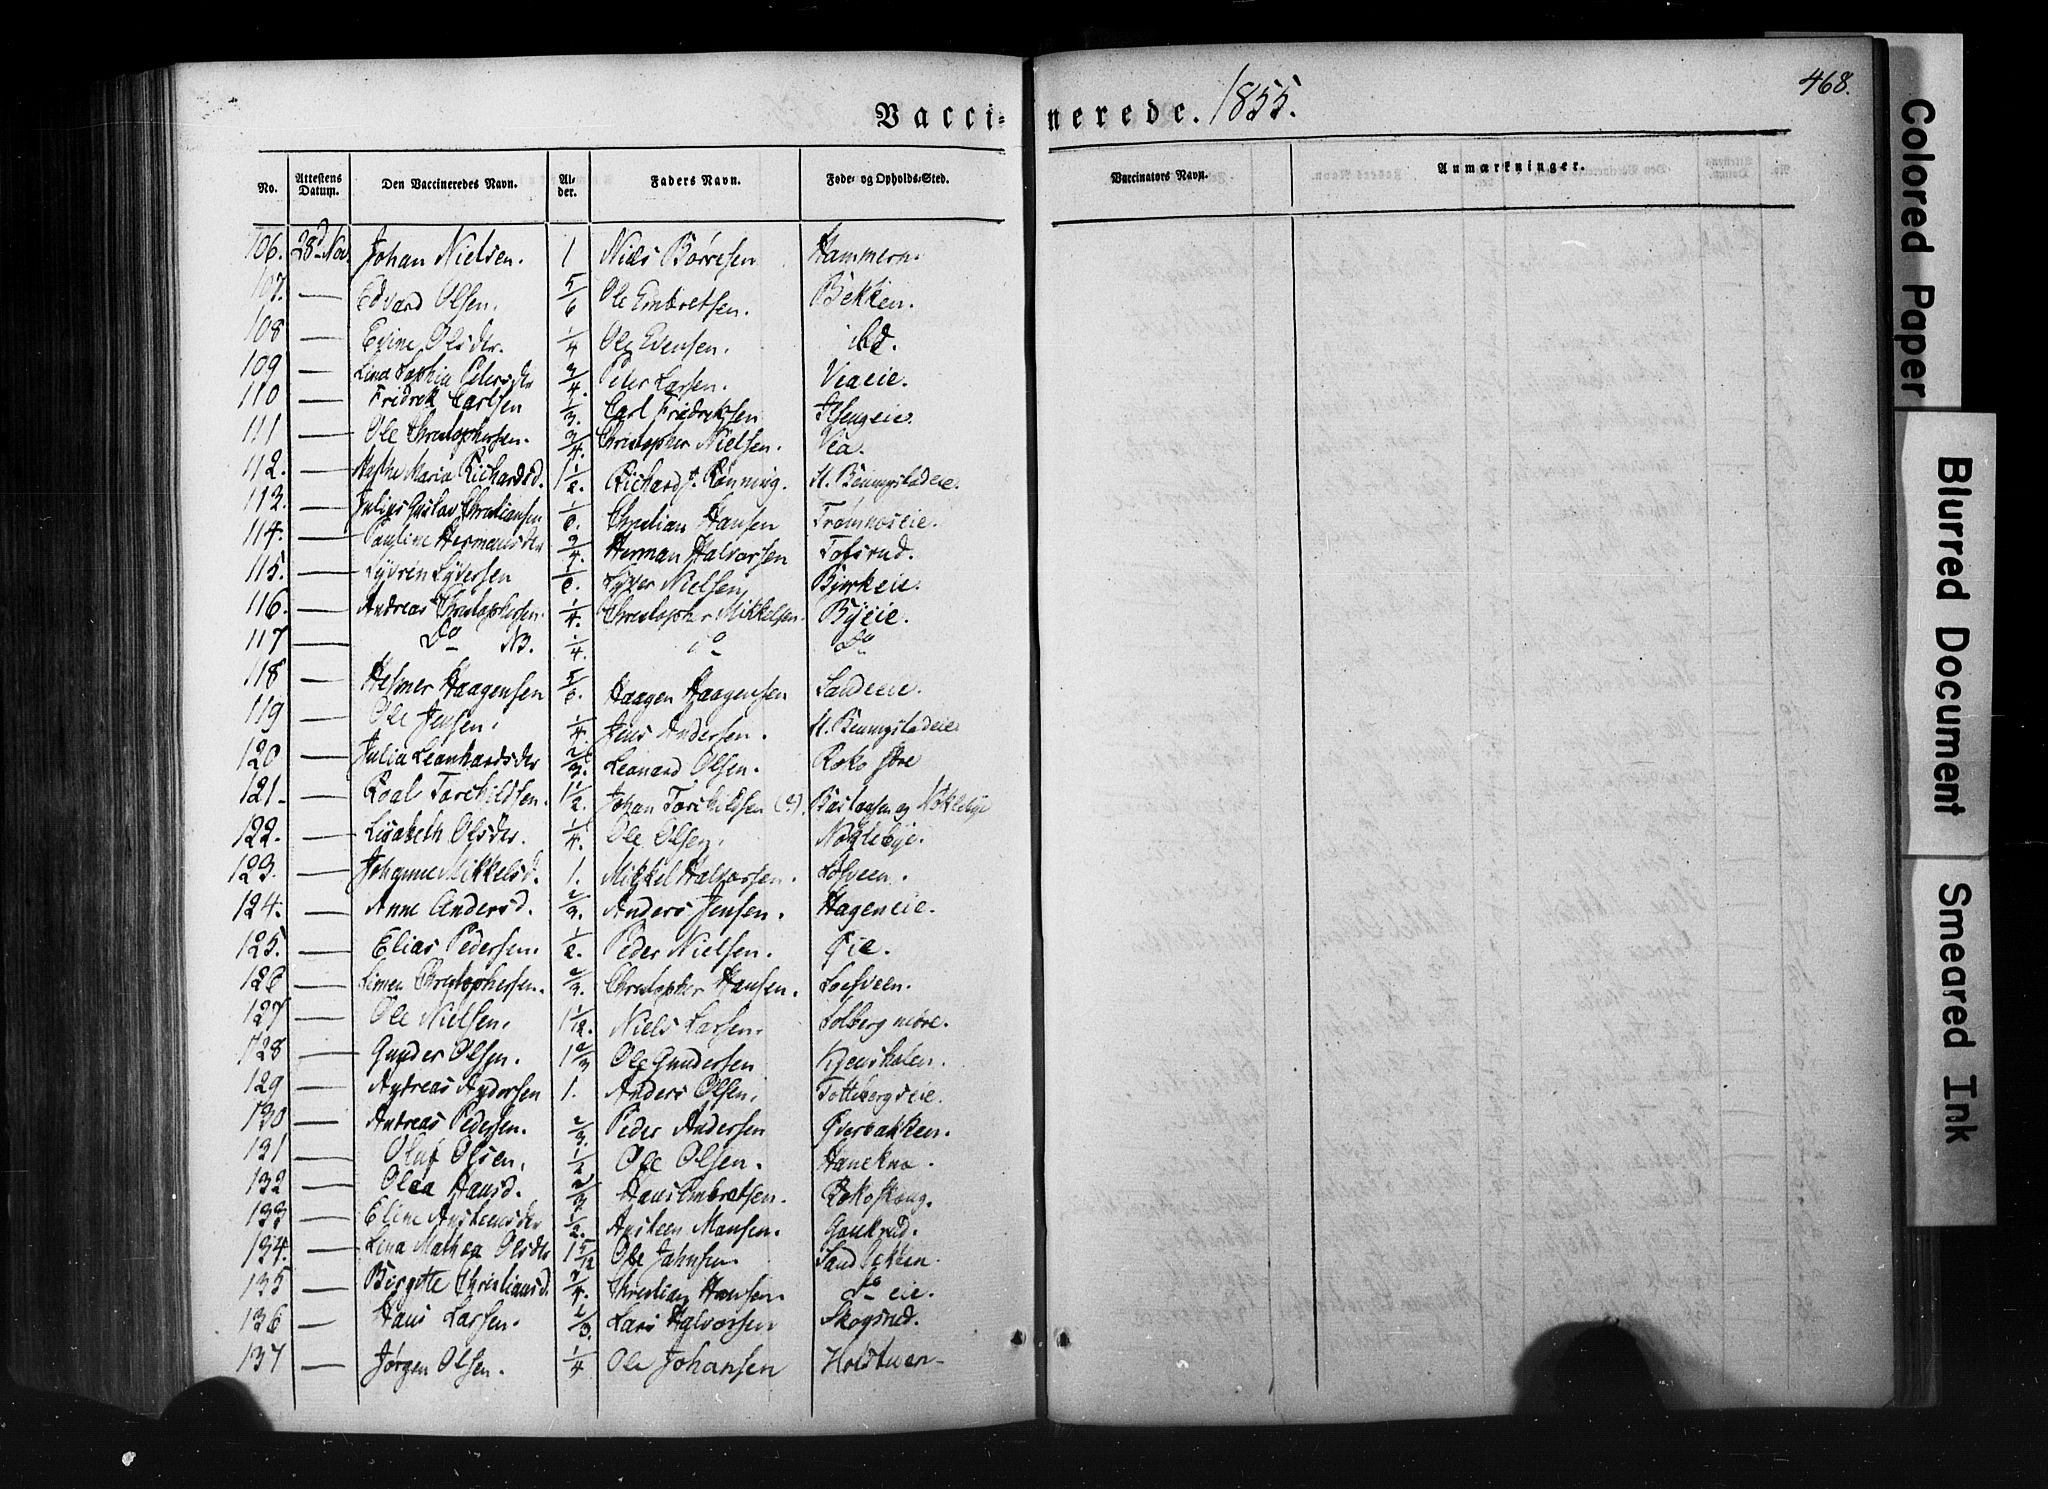 Vaccinerede. 1855.
468.
No. Attestens Datum. Den Vaccineredes Navn. Alder. Faders Navn. Føde- og Opholds-Sted. Vaccinators Navn. Anmærkninger.
106. 28d Nov Johan Nielsen. 1 Niels Børresen Hammeren
107. — Edvard Olsen. 5/6 Ole Embretsen. Bekken.
108 — Evine Olsdr. 1/4 Ole Evensen. ibd.
109 — Lina Sophia Petersdr 3/4 Peter Larsen. Viaeie.
110 — Fridrik Carlsen 1/3. Carl Fridriksen Ilsengeie.
111 — Ole Christophersen. 3/4 Christopher Nielsen. Via.
112. — Maria Richardsd. 1 1/2. Richard J. Rønning. St. Benningstadeie.
113. — Julius Gustav Christiansen 1/2. Christian Hansen
114. — Pauline Hermansdr 3/4. Herman Halvorsen Tofsrud.
115. — Syvrin Syversen Syver Nielsen Byrkeie.
116. — Andreas Christophersen. 1/4. Christopher Mikkelsen. Byeie.
117 — Do N3. 1/4. do Do
118 — Helmer Haagensen 5/6. Haagen Haagensen Sandeeie.
119 — Ole Jensen. 1/4 Jens Andersen. St. Benningstadeie
120 — Julia Leonhardsdr 2/3. Leonard Olsen. Roko søre
121 — Roal Torchildsen. 1 1/2. Johan Torchildsen Bastaasen og Nøklebye
122. — Lisabeth Olsdr. 1/4. Ole Olsen. Nøklebye.
123. — Johanne Mikkelsd. 1. Mikkel Halvorsen. Løfveen.
124. — Anne Andersd. 2/3. Anders Jensen. Hageneie.
125. — Elias Pedersen. 1/2. Peder Nielsen.
126 — Simen Christophersen. 2/3. Christopher Hansen. Loefveen.
127 — Ole Nielsen. 1 1/12. Niels Larsen. Solberg nøre.
128 — Gunder Olsen. 1 2/3 Ole Gundersen
129 — Andreas Andersen 1. Anders Olsen. Tottebergseie.
130 — Andreas Pedersen. 2/3. Peder Andersen Øverbakken.
131 — Oluf Olsen. 1/2 Ole Olsen. Hanekna.
132 — Olea Hansd. 2/3 Hans Embretsen. Rokoskoug.
133 — Eline Ansteensdr 1/2. Ansteen Monsen. Gaukrud.
134. — Lina Mathea Olsdr 1 5/12 Ole Jahnsen. Sandbekken.
135 — Birgitte Christiansd. Christian Hansen. do eie.
136 — Hans Larsen. 2/3. Lars Halvorsen Skogsrud.
137 — Jørgen Olsen. 1/4 Ole Johansen Holstuen
Colored Paper
Blurred Document
Smeared Ink